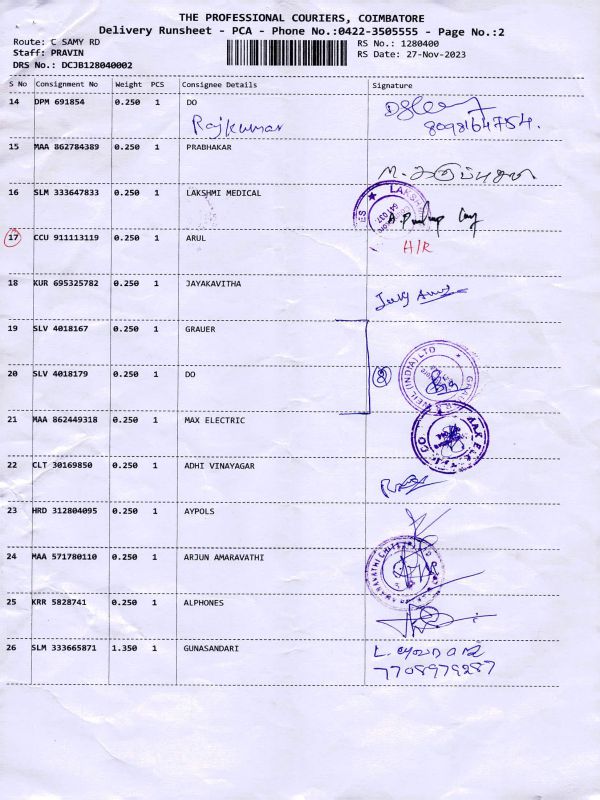 THE PROFESSIONAL COURIERS, COIMBATORE
Delivery Runsheet - PCA - Phone No.:0422-3505555 - Page No.:2
Route: C SAMY RD
RS No.: 1280400
Staff: PRAVIN
RS Date: 27-Nov-2023
DRS No.: DCJB128040002
S No Consignment No Weight PCS Consignee Details Signature
14 DPM 691854 0.250 1 DO
Rajkumar 8098164754.
15 MAA 862784389 0.250 1 PRABHAKAR
16 SLM 333647833 0.250 1 LAKSHMI MEDICAL
17 CCU 911113119 0.250 1 ARUL H/R
18 KUR 695325782 0.250 1 JAYAKAVITHA
19 SLV 4018167 0.250 1 GRAUER
(INDIA) LTD
20 SLV 4018179 0.250 1 DO
21 MAA 862449318 0.250 1 MAX ELECTRIC
22 CLT 30169850 0.250 1 ADHI VINAYAGAR
23 HRD 312804095 0.250 1 AYPOLS
24 MAA 571780110 0.250 1 ARJUN AMARAVATHI
25 KRR 5828741 0.250 1 ALPHONES
26 SLM 333665871 1.350 1 GUNASANDARI
7708979287